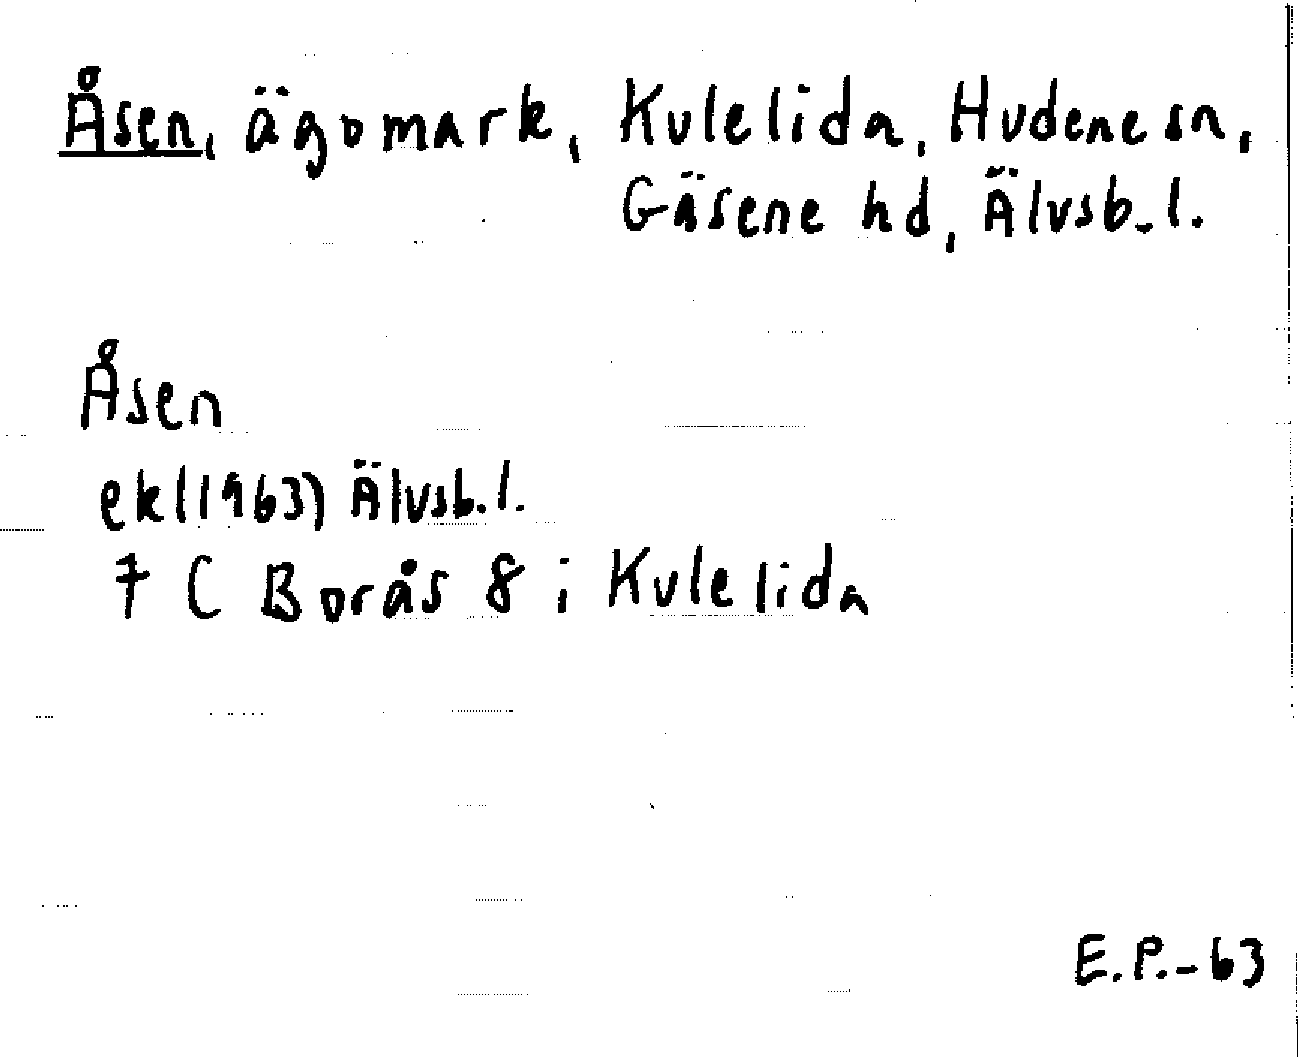 Åsen, ägomark, Kulelida, Hudene sn,
Gäsene hd, Älvsb. l.
Åsen
ek(1963) Älvsb. l.
7 C Borås 8 i Kulelida
E.P.-63